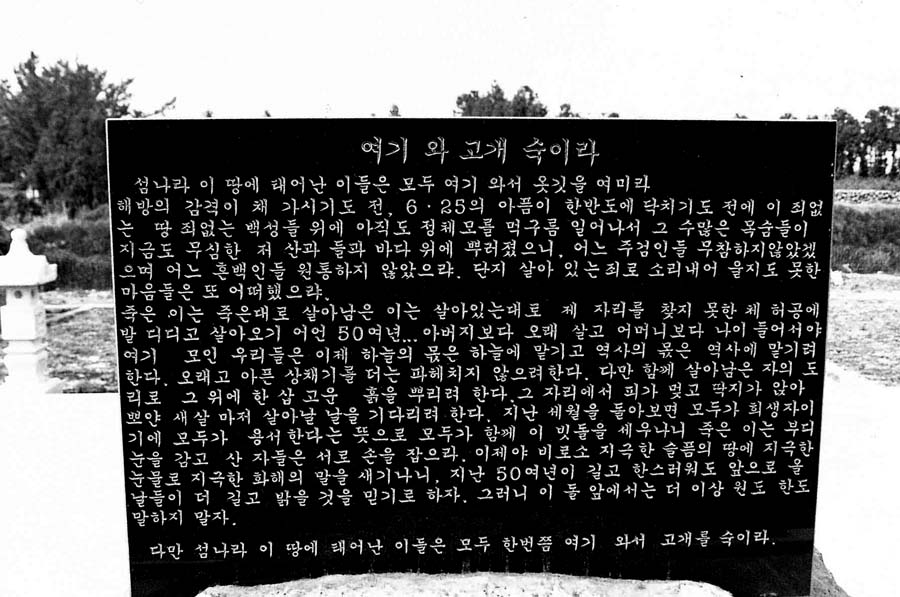 여기 와 고개 숙이라
섬나라 이 땅에 태어난 이들은 모두 여기 와서 옷깃을 여미라
해방의 감격이 채 가시기도 전, 6·25의 아픔이 한반도에 닥치기도 전에 이 죄없
는 땅 죄없는 백성들 위에 아직도 정체모를 먹구름 일어나서 그 수많은 목숨들이
지금도 무심한 저 산과 들과 바다 위에 뿌러졌으니, 어느 주검인들 무참하지않았겠
으며 어느 혼백인들 원통하지 않았으랴. 단지 살아 있는 죄로 소리내어 울지도 못한
마음들은 또 어떠했으랴.
죽은 이는 죽은대로 살아남은 이는 살아있는대로 제 자리를 찾지 못한 체 허공에
발 디디고 살아오기 어언 50여년... 아버지보다 오래 살고 어머니보다 나이 들어서야
여기 모인 우리들은 이제 하늘의 몫은 하늘에 맡기고 역사의 몫은 역사에 맡기려
한다. 오래고 아픈 상채기를 더는 파헤치지 않으려한다. 다만 함께 살아남은 자의 도
리로 그 위에 한 삽 고운 흙을 뿌리려 한다. 그 자리에서 피가 멎고 딱지가 앉아
뽀얀 새살 마저 살아날 날을 기다리려 한다. 지난 세월을 돌아보면 모두가 희생자이
기에 모두가 용서한다는 뜻으로 모두가 함께 이 빗돌을 세우나니 죽은 이는 부디
눈을 감고 산 자들은 서로 손을 잡으라. 이제야 비로소 지극한 슬픔의 땅에 지극한
눈물로 지극한 화해의 말을 새기나니, 지난 50여년이 길고 한스러워도 앞으로 올
날들이 더 길고 밝을 것을 믿기로 하자. 그러니 이 돌 앞에서는 더 이상 원도 한도
말하지 말자.
다만 섬나라 이 땅에 태어난 이들은 모두 한번쯤 여기 와서 고개를 숙이라.